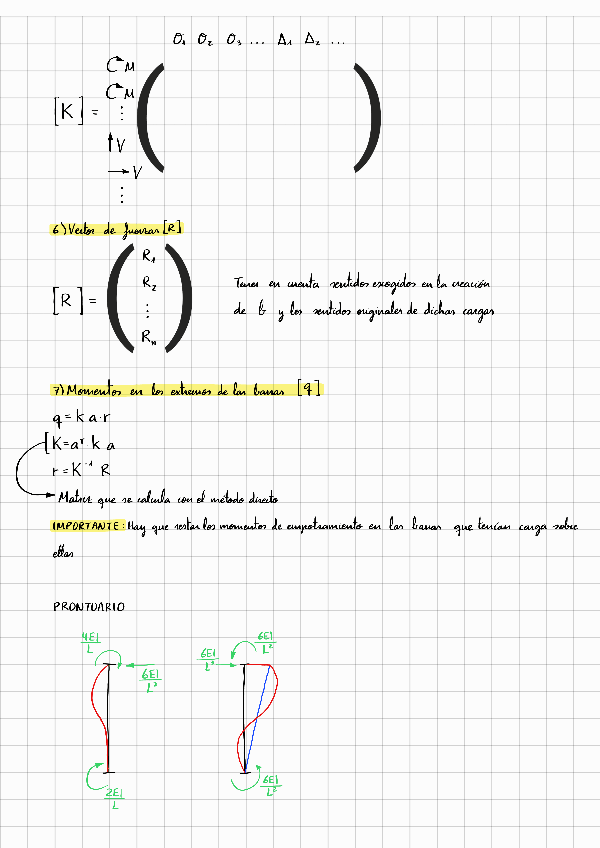 θ₁ θ₂ θ₃ ... Δ₁ Δ₂ ...
M
M
[K] = ⋮
V
V
⋮
6) Vector de fuerzas [R]
[R] =
R₁
R₂
⋮
Rₙ
Tener en cuenta sentidos escogidos en la creación
de b y los sentidos originales de dichas cargas
7) Momentos en los extremos de las barras [q]
q = k a · r
K = aᵀ k a
r = K⁻¹ R
Matriz que se calcula con el método directo
IMPORTANTE: Hay que restar los momentos de empotramiento en las barras que tenían carga sobre
ellas
PRONTUARIO
4EI/L
6EI/L²
2EI/L
6EI/L²
6EI/L²
6EI/L²